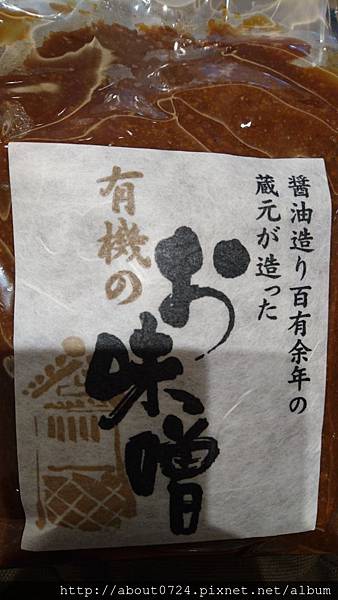 醤油造り百有余年の
蔵元が造った
有機の
お味噌
http://about0724.pixnet.net/album